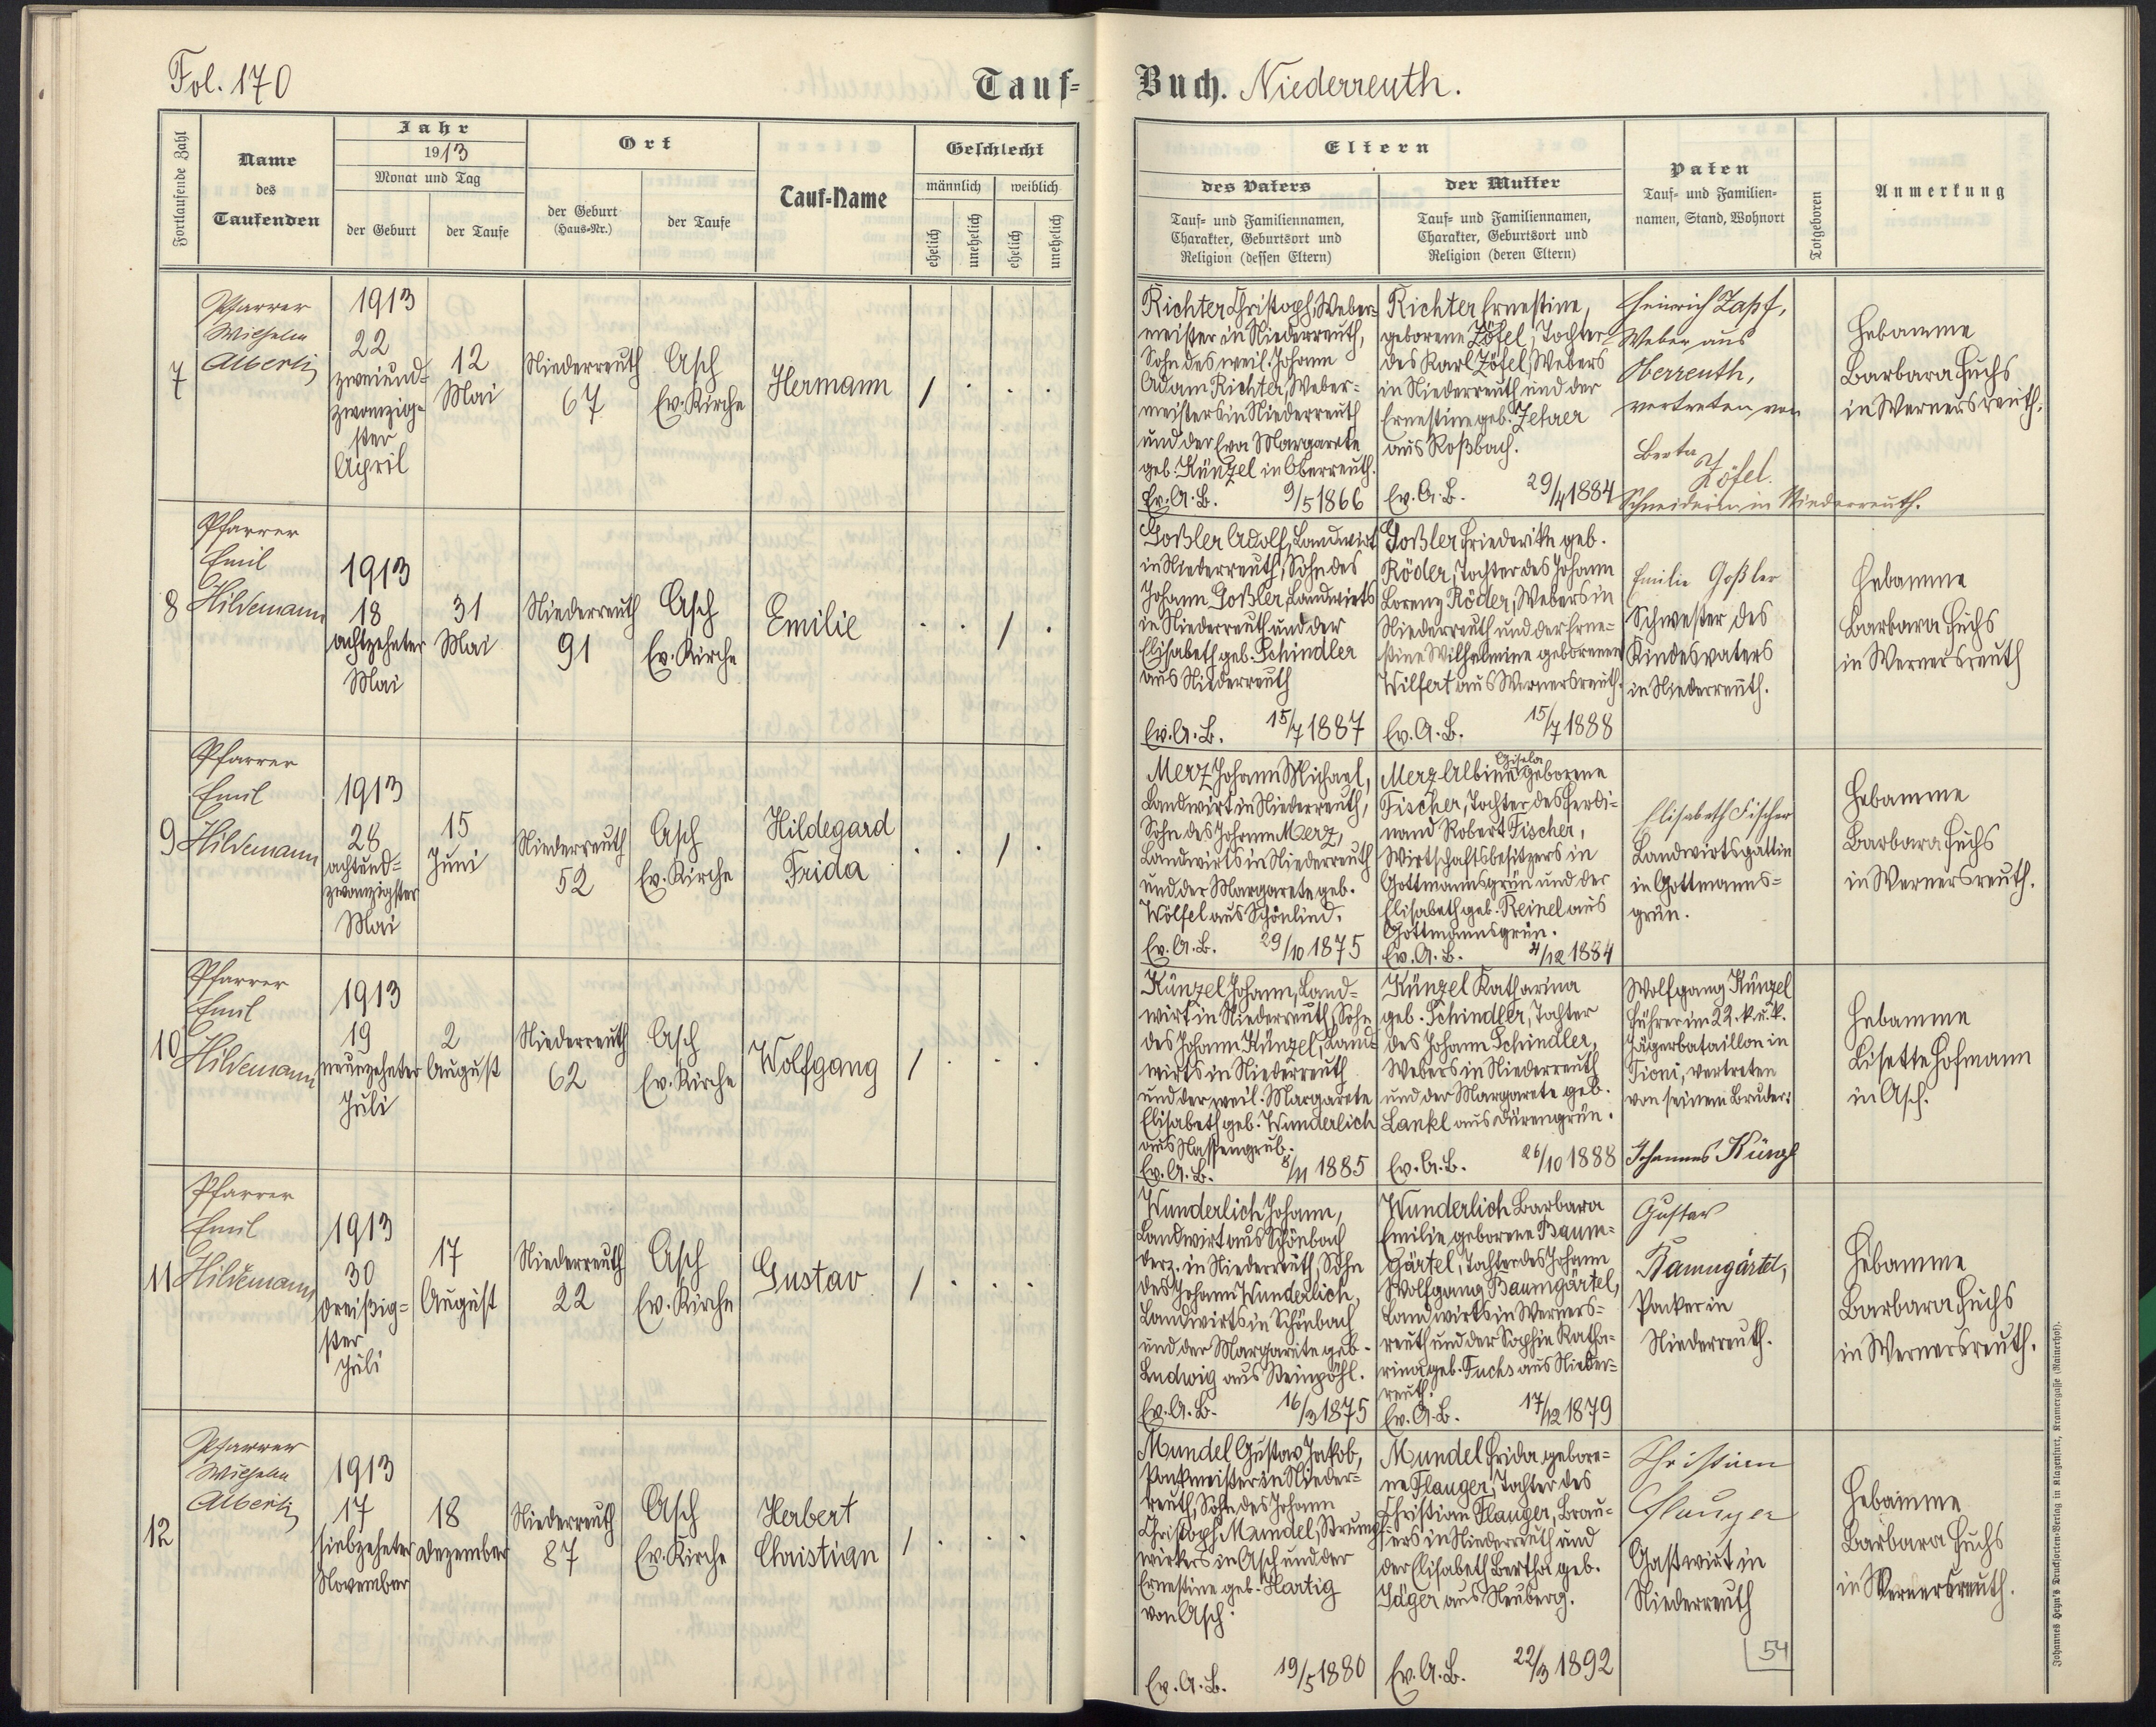 Fol. 170
Tauf-
Buch. Niederreuth.
Fortlaufende Zahl
Name
des
Taufenden
Jahr
1913
Monat und Tag
der Geburt
der Taufe
Ort
der Geburt
(Haus-Nr.)
der Taufe
Tauf-Name
Geschlecht
männlich
weiblich
ehelich
unehelich
ehelich
unehelich
Eltern
des Vaters
Tauf- und Familiennamen,
Charakter, Geburtsort und
Religion (dessen Eltern)
der Mutter
Tauf- und Familiennamen,
Charakter, Geburtsort und
Religion (deren Eltern)
Paten
Tauf- und Familien-
namen, Stand, Wohnort
Totgeboren
Anmerkung
7
Pfarrer
Wilhelm
Alberti
1913
22
zweiund-
zwanzig-
ster
April
12
Mai
Niederreuth
67
Asch
Ev. Kirche
Hermann
/
Richter Christoph, Weber-
meister in Niederreuth,
Sohn des weil. Johann
Adam Richter, Weber-
meisters in Niederreuth
und der Eva Margarete
geb. Künzel in Oberreuth.
Ev. A. B. 9/5 1866
Richter Ernestine,
geborene Zöfel, Tochter
des Karl Zöfel, Webers
in Niederreuth und der
Ernestine geb. Zehrer
aus Roßbach.
Ev. A. B. 29/4 1884
Heinrich Zapf,
Weber aus
Oberreuth,
vertreten von
Berta
Zöfel.
Schneiderin in Niederreuth.
Hebamme
Barbara Fuchs
in Wernersreuth.
8
Pfarrer
Emil
Hildemann
1913
18
achtzehnter
Mai
31
Mai
Niederreuth
91
Asch
Ev. Kirche
Emilie
/
Goßler Adolf, Landwirt
in Niederreuth, Sohn des
Johann Goßler, Landwirts
in Niederreuth und der
Elisabeth geb. Schindler
aus Niederreuth
Ev. A. B. 15/7 1887
Goßler Friederike geb.
Röder, Tochter des Johann
Lorenz Röder, Webers in
Niederreuth und der Erne-
stine Wilhelmine geborenen
Wilfert aus Wernersreuth.
Ev. A. B. 15/7 1888
Emilie Goßler
Schwester des
Kindesvaters
in Niederreuth.
Hebamme
Barbara Fuchs
in Wernersreuth
9
Pfarrer
Emil
Hildemann
1913
28
achtund-
zwanzigster
Mai
15
Juni
Niederreuth
52
Asch
Ev. Kirche
Hildegard
Frida
/
Merz Johann Michael,
Landwirt in Niederreuth,
Sohn des Johann Merz,
Landwirts in Niederreuth
und der Margarete geb.
Wölfel aus Schönlind.
Ev. A. B. 29/10 1875
Gisela
Merz Albine geborene
Fischer, Tochter des Ferdi-
nand Robert Fischer,
Wirtschaftsbesitzers in
Gottmannsgrün und der
Elisabeth geb. Reinel aus
Gottmannsgrün.
Ev. A. B. /12 1884
Elisabeth Fischer
Landwirtsgattin
in Gottmanns-
grün.
Hebamme
Barbara Fuchs
in Wernersreuth.
10
Pfarrer
Emil
Hildemann
1913
19
neunzehnter
Juli
2
August
Niederreuth
62
Asch
Ev. Kirche
Wolfgang
/
Künzel Johann, Land-
wirt in Niederreuth, Sohn
des Johann Künzel, Land-
wirts in Niederreuth
und der weil. Margarete
Elisabeth geb. Wunderlich
aus Nassengrub.
Ev. A. B. 8/11 1885
Künzel Katharina
geb. Schindler, Tochter
des Johann Schindler,
Webers in Niederreuth
und der Margarete geb.
Lankl aus Dürengrün.
Ev. A. B. 26/10 1888
Wolfgang Künzel
Führer im 22. k. u. k.
Jägerbataillon in
Tioni, vertreten
von seinem Bruder:
Johannes Künzl
Hebamme
Lisette Hofmann
in Asch.
11
Pfarrer
Emil
Hildemann
1913
30
dreißig-
ster
Juli
17
August
Niederreuth
22
Asch
Ev. Kirche
Gustav
/
Wunderlich Johann,
Landwirt aus Schönbach
derz. in Niederreuth, Sohn
des Johann Wunderlich,
Landwirts in Schönbach
und der Margarete geb.
Ludwig aus Steinpöhl.
Ev. A. B. 16/3 1875
Wunderlich Barbara
Emilie, geborene Baum-
gärtel, Tochter des Johann
Wolfgang Baumgärtel,
Landwirts in Werners-
reuth und der Sophie Katha-
rina geb. Fuchs aus Nieder-
reuth.
Ev. A. B. 17/12 1879
Gustav
Baumgärtel,
Packer in
Niederreuth.
Hebamme
Barbara Fuchs
in Wernersreuth.
12
Pfarrer
Wilhelm
Alberti
1913
17
siebzehnter
November
18
Dezember
Niederreuth
87
Asch
Ev. Kirche
Herbert
Christian
/
Mundel Gustav Jakob,
Packmeister in Nieder-
reuth, Sohn des Johann
Christoph Mundel, Strumpf-
wirkers in Asch und der
Ernestine geb. Hartig
von Asch.
Ev. A. B. 19/5 1880
Mundel Frida, gebore-
ne Flauger, Tochter des
Christian Flauger, Brau-
ers in Niederreuth und
der Elisabeth Bertha geb.
Jäger aus Neuberg.
Ev. A. B. 22/3 1892
Christian
Flauger
Gastwirt in
Niederreuth
54
Hebamme
Barbara Fuchs
in Wernersreuth.
Johannes Heyn's Drucksorten-Verlag in Klagenfurt, Kramergasse (Rainerhof).